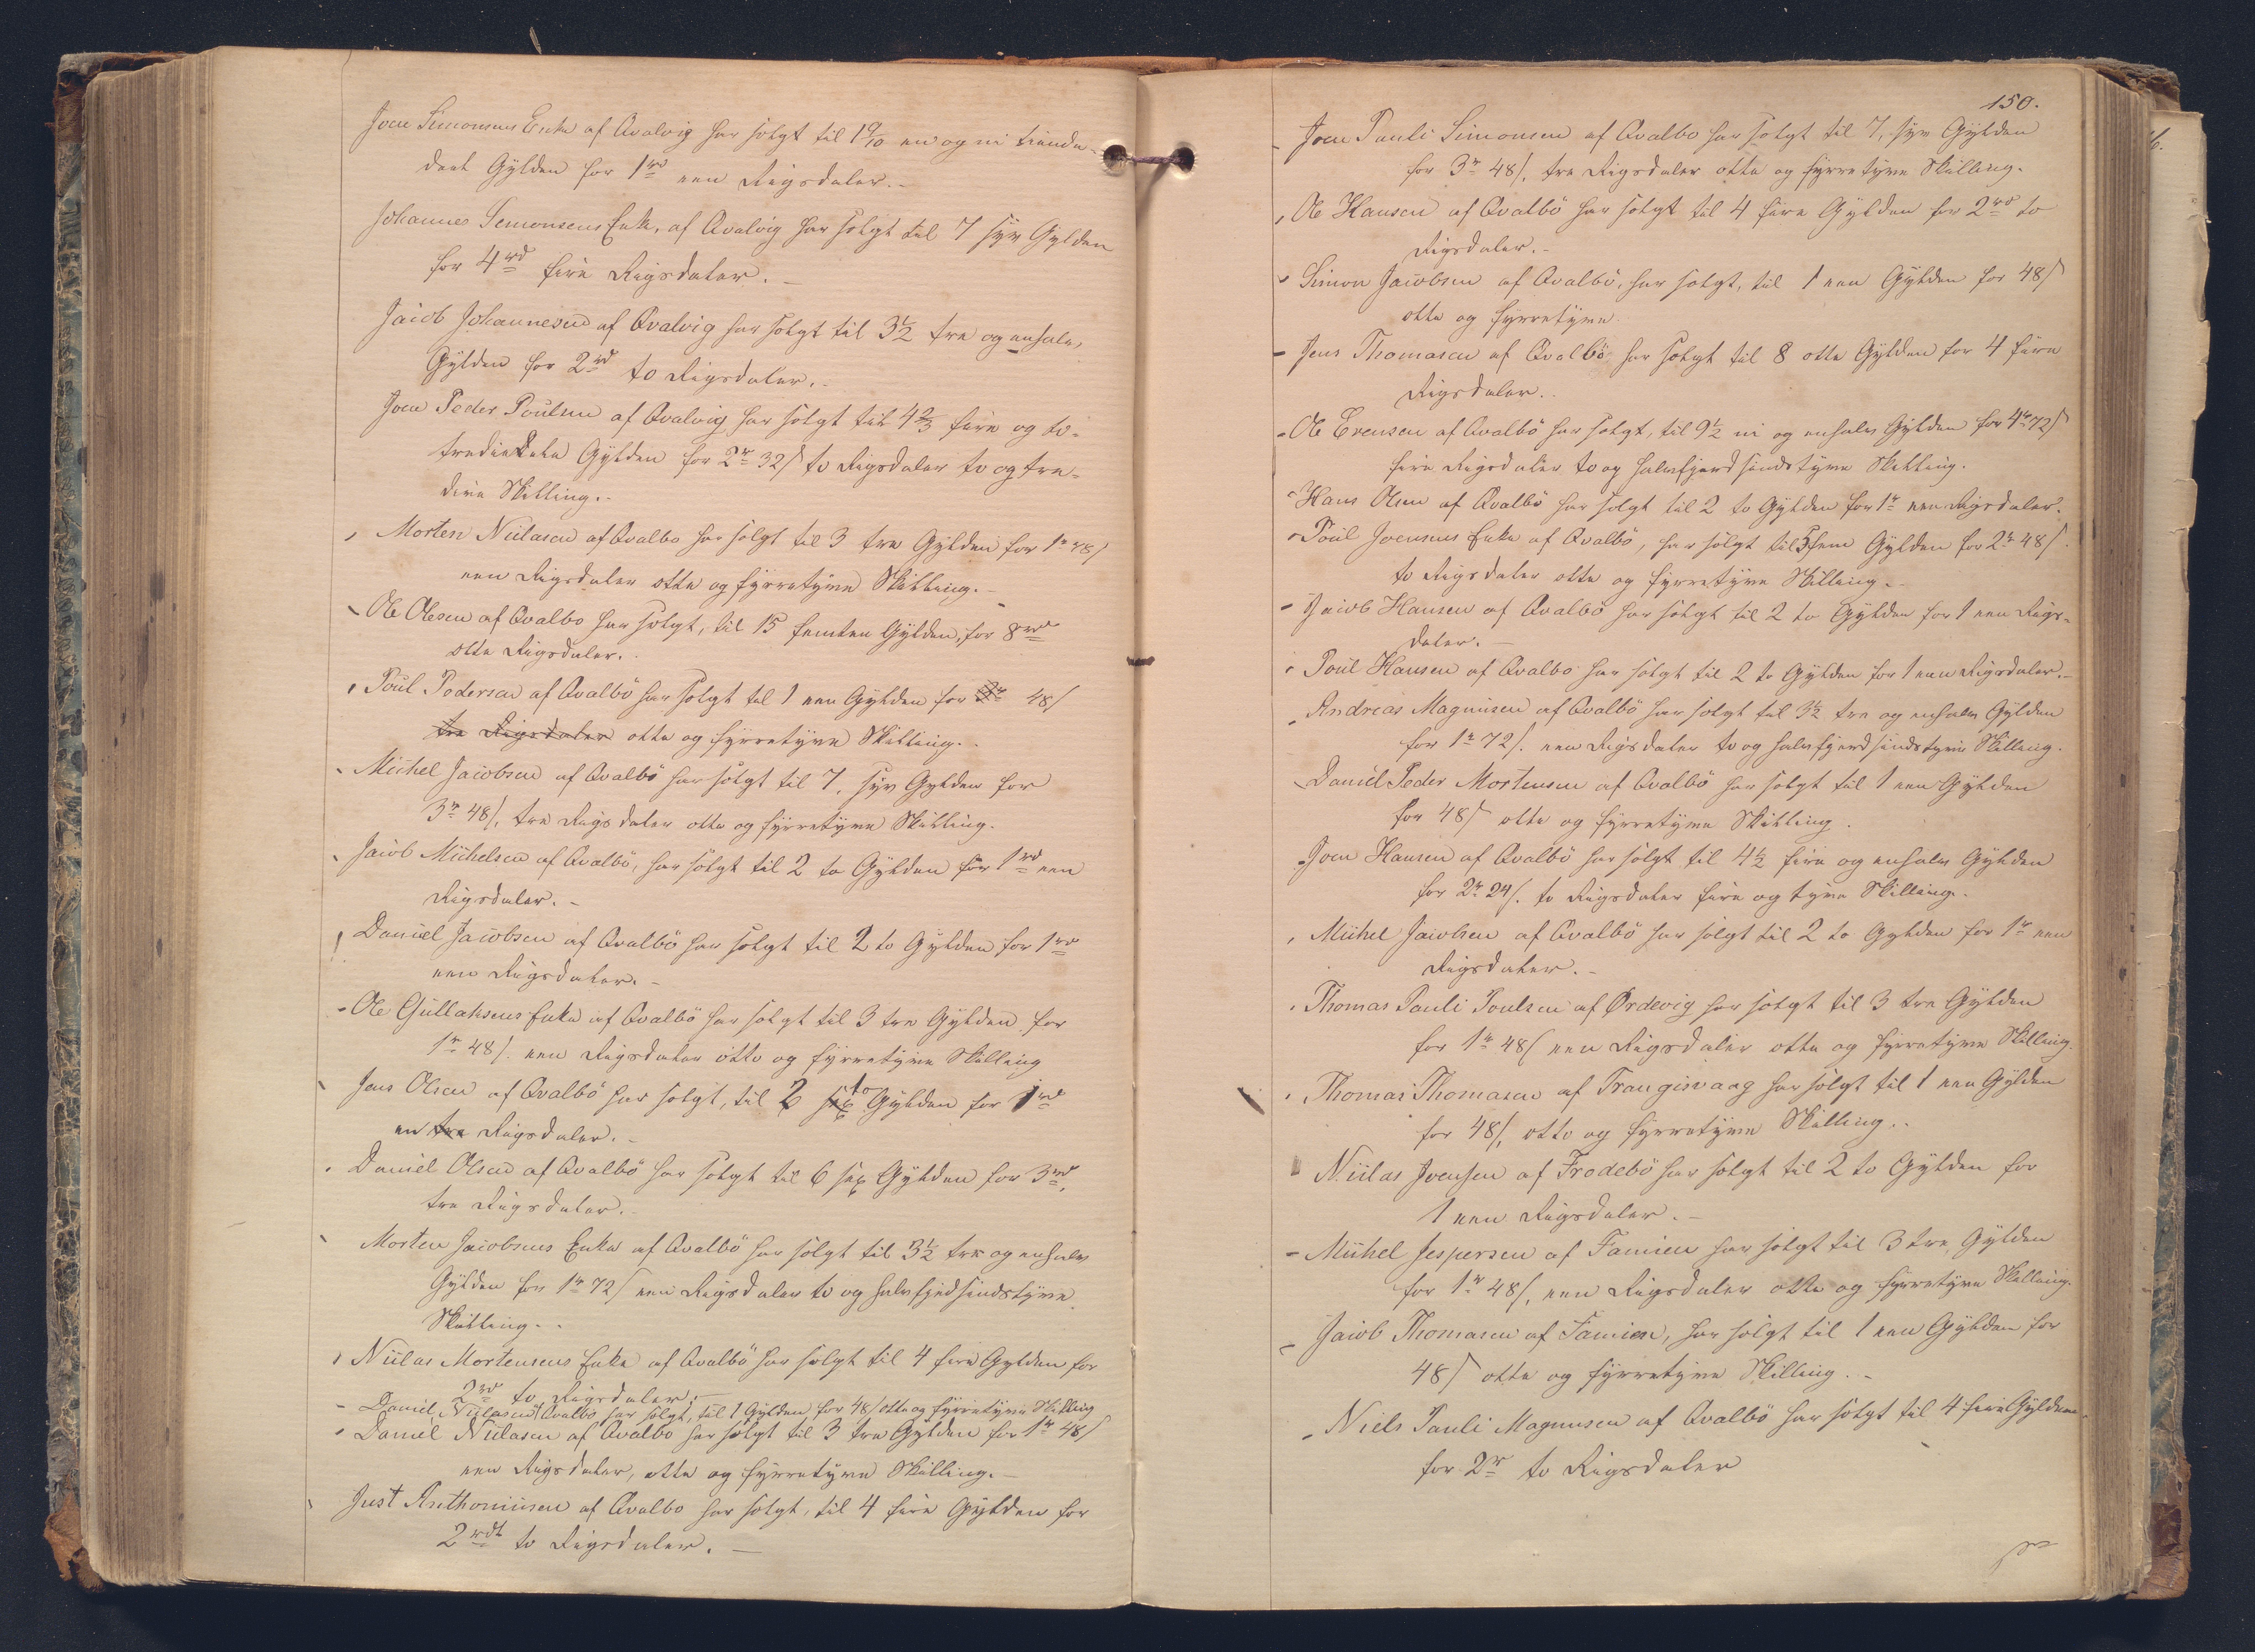 Joen Simonsens Enke af Qvalvig har solgt til 1 9/10 en og ni tiende
deel Gylden for 1 rd een Rigsdaler.-
Johannes Semonsens Enke, af Qvalvig har solgt til 7 syv Gylden
for 4 rd fire Rigsdaler. -
Jacob Johannesen af Qvalvig har solgt til 3½ tre og enhalv,
Gylden for 2 rd to Rigsdaler.-
Joen Peder Poulsen af Qvalvig har solgt til 4⅔ fire og to-
trediedele Gylden for 2 r 32 ß to Rigsdaler to og tre-
dive Skilling.-
Morten Niclasen af Qvalbo har solgt til 3 tre Gylden for 1 r 48 ß
een Rigsdaler otte og fyrretyve Skilling.-
Ole Olesen af Qvalbo har solgt, til 15 femten Gylden, for 8 rd
otte Rigsdaler.-
Poul Pedersen af Qvalbö har solgt til 1 een Gylden for 3 r 48 ß
tre Rigsdaler otte og fyrretyve Skilling.-
Michel Jacobsen af Qvalbö har solgt til 7, syv Gylden for
3 r 48 ß, tre Rigsdaler otte og fyrretyve Skilling.
Jacob Michelsen af Qvalbö, har solgt til 2 to Gylden for 1 rd een
Rigsdaler. -
Daniel Jacobsen af Qvalbö har solgt til 2 to Gylden for 1 rd
een Rigsdaler. -
Ole Gullaksens Enke af Qvalbö har solgt til 3 tre Gylden for
1 r 48 ß. een Rigsdaler otte og fyrretyve Skilling
Jens Olsen af Qvalbö har solgt, til 2 sex to Gylden for 1 rd
en tre Rigsdaler. -
Daniel Olsen af Qvalbö har solgt til 6 sex Gylden for 3 rd,
tre Rigsdaler. -
Morten Jacobsens Enke af Qvalbö har solgt til 3½ tre og enhalv
Gylden for 1 r 72 ß een Rigsdaler to og halvfjedsindstyve
Skilling. -
Niclas Mortensens Enke af Qvalbö har solgt til 4 fire Gylden for
2 rd to Rigsdaler. -
Daniel Niclasen af Qvalbo har solgt, til 1 Gylden for 48 ß otte og fyrretyve Skilling
Daniel Niclasen af Qvalbo har solgt til 3 tre Gylden for 1 r 48 ß
een Rigsdaler, otte og fyrretyve Skilling. -
Just Anthoniusen af Qvalbo har solgt, til 4 fire Gylden for
2 rdl to Rigsdaler. -
150.
Joen Pauli Simonsen af Qvalbo har solgt til 7, syv Gylden
for 3 r 48 ß, tre Rigsdaler otte og fyrretyve Skilling.
Ole Hansen af Qvalbö har solgt til 4 fire Gylden for 2 rd to
Rigsdaler. -
Simon Jacobsen af Qvalbö, har solgt, til 1 een Gylden for 48 ß
otte og fyrretyve
Jens Thomasen af Qvalbö har solgt til 8 otte Gylden for 4 fire
Rigsdaler.
Ole Evensen af Qvalbö har solgt, til 9½ ni og enhalv Gylden for 4 r 72 ß
fire Rigsdaler to og halvfjerdsindstyve Skilling.
Hans Olsen af Qvalbö har solgt til 2 to Gylden for 1 r een Rigsdaler.
Poul Joensens Enke af Qvalbö, har solgt til 5 fem Gylden for 2 r 48 ß.
to Rigsdaler otte og fyrretyve Skilling. -
Jacob Hansen af Qvalbö har solgt til 2 to Gylden for 1 een Rigs-
daler. -
Poul Hansen af Qvalbo har solgt til 2 to Gylden for 1 een Rigsdaler. -
Andreas Magnusen af Qvalbö har solgt til 3½ tre og enhalv Gylden
for 1 r 72 ß. een Rigsdaler to og halvfjerdsindstyve Skilling.
Daniel Peder Mortensen af Qvalbö har solgt til 1 een Gylden
for 48 ß otte og fyrretyve Skilling.
Joen Hansen af Qvalbö har solgt til 4½ fire og enhalv Gylden
for 2 r 24 ß. to Rigsdaler fire og tyve Skilling.
Michel Jacobsen af Qvalbö har solgt til 2 to Gylden for 1 r een
Rigsdaler. -
Thomas Pauli Poulsen af Ördevig har solgt til 3 tre Gylden
for 1 r 48 ß een Rigsdaler otte og fyrretyve Skilling.
Thomas Thomasen af Trangisvaag har solgt til 1 een Gylden
for 48 ß, otte og fyrretyve Skilling.
Niclas Joensen af Frodebö har solgt til 2 to Gylden for
1 een Rigsdaler. -
Michel Jespersen af Famien har solgt til 3 tre Gylden
for 1 r 48 ß, een Rigsdaler otte og fyrretyve Skilling.
Jacob Thomasen af Famien, har solgt til 1 een Gylden for
48 ß otte og fyrretyve Skilling. -
Niels Pauli Magnusen af Qvalbö har solgt til 4 fire Gylden
for 2 r to Rigsdaler